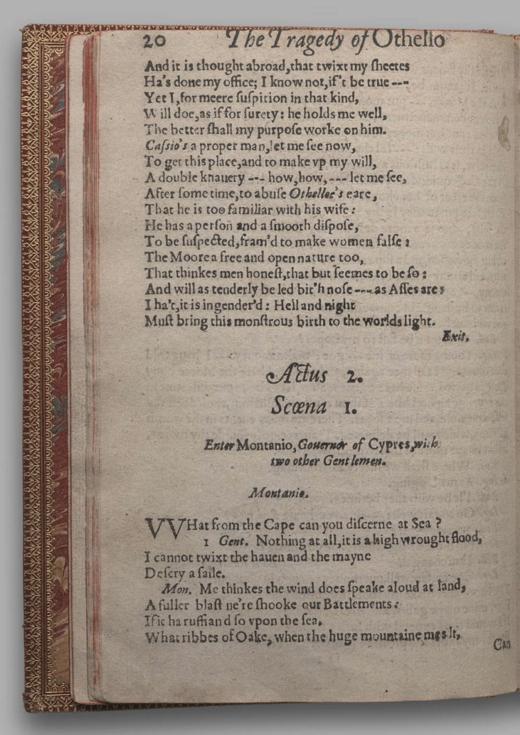 20 The Tragedy of Othello
And it is thought abroad, that twixt my sheetes
Ha's done my office; I know not, if't be true ---
Yet I, for meere suspition in that kind,
Will doe, as if for surety: he holds me well,
The better shall my purpose worke on him.
Cassio's a proper man, let me see now,
To get this place, and to make vp my will,
A double knauery --- how, how, --- let me see,
After some time, to abuse Othelloe's eare,
That he is too familiar with his wife:
He has a person and a smooth dispose,
To be suspected, fram'd to make women false:
The Moore a free and open nature too,
That thinkes men honest, that but seemes to be so:
And will as tenderly be led bit'h nose --- as Asses are:
I ha't, it is ingender'd: Hell and night
Must bring this monstrous birth to the worlds light.
Exit.
Actus 2.
Scœna 1.
Enter Montanio, Gouernor of Cypres, with
two other Gentlemen.
Montanio.
VVHat from the Cape can you discerne at Sea?
1 Gent. Nothing at all, it is a high wrought flood,
I cannot twixt the hauen and the mayne
Descry a saile.
Mon. Me thinkes the wind does speake aloud at land,
A fuller blast ne're shooke our Battlements:
If it ha ruffiand so vpon the sea,
What ribbes of Oake, when the huge mountaine meslt,
Can